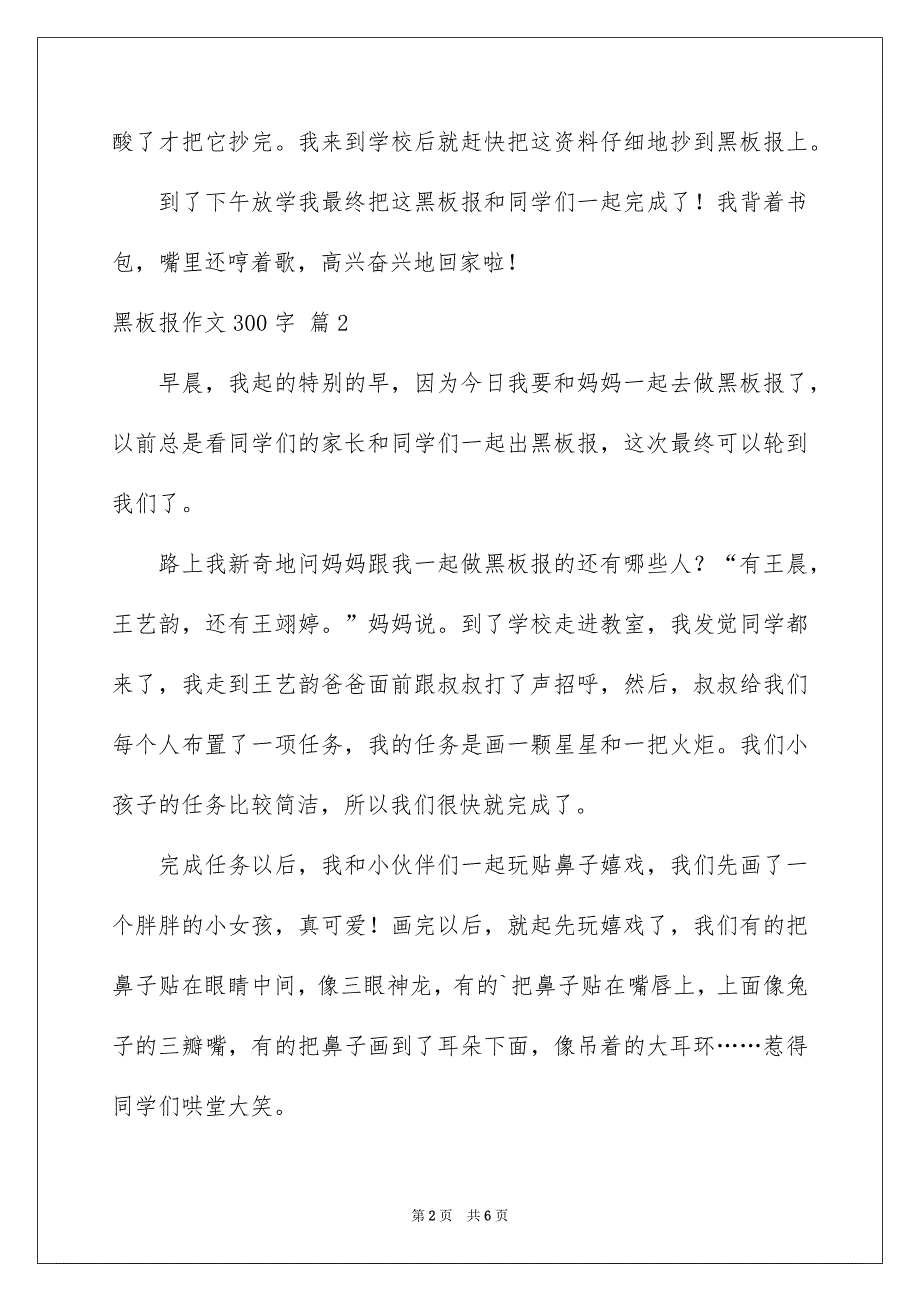 酸了才把它抄完。我来到学校后就赶快把这资料仔细地抄到黑板报上。
到了下午放学我最终把这黑板报和同学们一起完成了！我背着书
包，嘴里还哼着歌，高兴奋兴地回家啦！
黑板报作文300字 篇2
早晨，我起的特别的早，因为今日我要和妈妈一起去做黑板报了，
以前总是看同学们的家长和同学们一起出黑板报，这次最终可以轮到
我们了。
路上我新奇地问妈妈跟我一起做黑板报的还有哪些人？“有王晨，
王艺韵，还有王翊婷。”妈妈说。到了学校走进教室，我发觉同学都
来了，我走到王艺韵爸爸面前跟叔叔打了声招呼，然后，叔叔给我们
每个人布置了一项任务，我的任务是画一颗星星和一把火炬。我们小
孩子的任务比较简洁，所以我们很快就完成了。
完成任务以后，我和小伙伴们一起玩贴鼻子嬉戏，我们先画了一
个胖胖的小女孩，真可爱！画完以后，就起先玩嬉戏了，我们有的把
鼻子贴在眼睛中间，像三眼神龙，有的`把鼻子贴在嘴唇上，上面像兔
子的三瓣嘴，有的把鼻子画到了耳朵下面，像吊着的大耳环……惹得
同学们哄堂大笑。
第2页 共6页